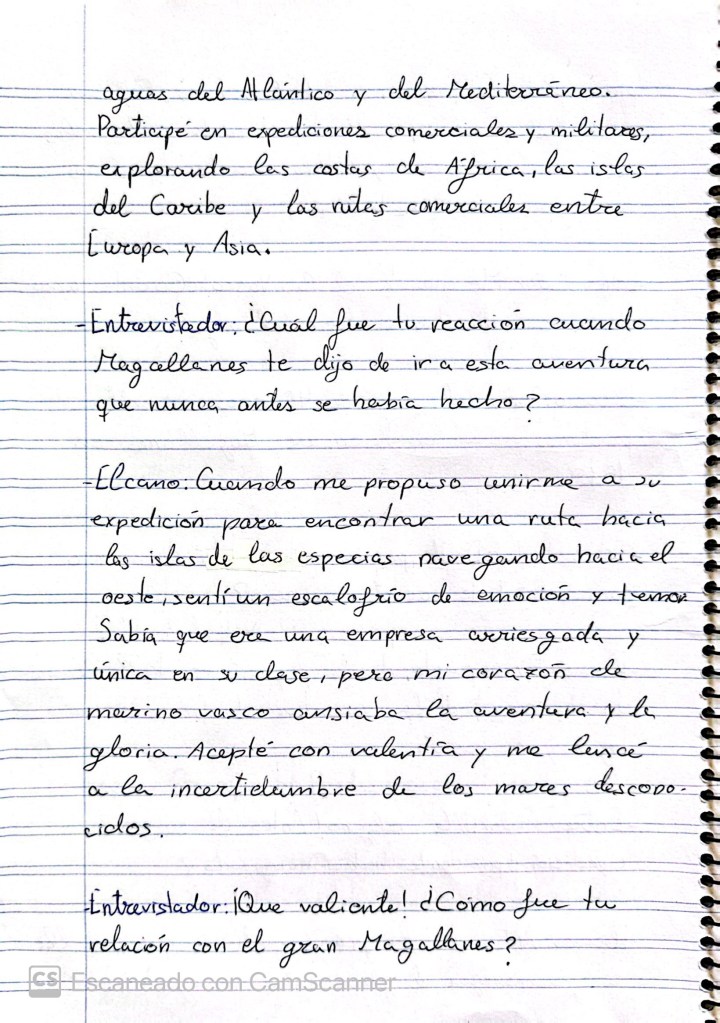 aguas del Atlántico y del Mediterráneo.
Participé en expediciones comerciales y militares,
explorando las costas de África, las islas
del Caribe y las rutas comerciales entre
Europa y Asia.
-Entrevistador: ¿Cuál fue tu reacción cuando
Magallanes te dijo de ir a esta aventura
que nunca antes se había hecho?
-Elcano: Cuando me propuso unirme a su
expedición para encontrar una ruta hacia
las islas de las especias navegando hacia el
oeste, sentí un escalofrío de emoción y temor.
Sabía que era una empresa arriesgada y
única en su clase, pero mi corazón de
marino vasco ansiaba la aventura y la
gloria. Acepté con valentía y me lancé
a la incertidumbre de los mares descono-
cidos.
-Entrevistador: ¡Que valiente! ¿Cómo fue tu
relación con el gran Magallanes?
CS Escaneado con CamScanner